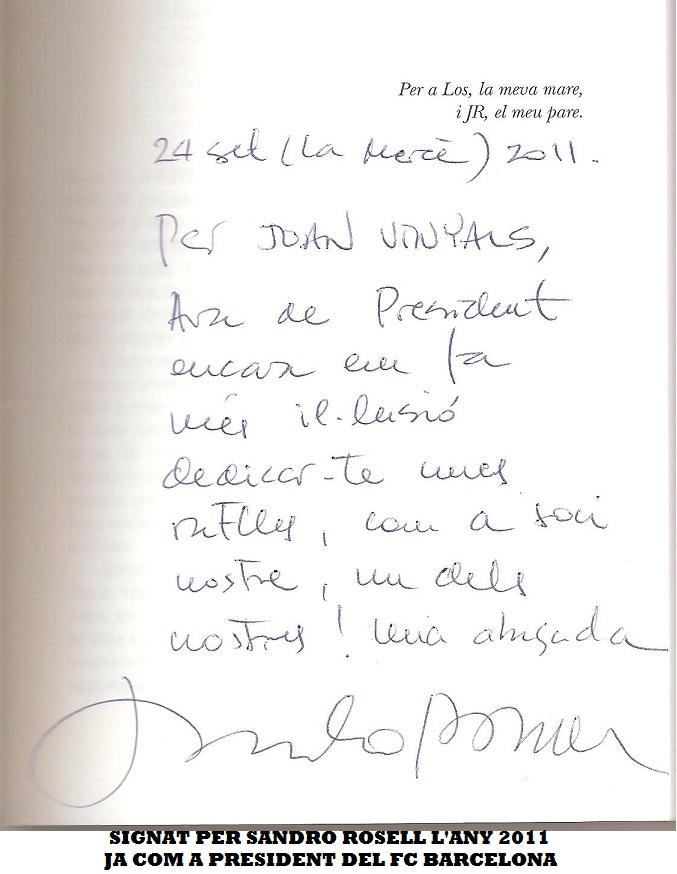 Per a Los, la meva mare,
i JR, el meu pare.
24 set (La Mercè) 2011.
Per JOAN VINYALS,
Ara de President
encara em fa
més il·lusió
dedicar-te unes
ratlles, com a soci
nostre, un dels
nostres! Una abraçada
Sandro Rosell
SIGNAT PER SANDRO ROSELL L'ANY 2011
JA COM A PRESIDENT DEL FC BARCELONA